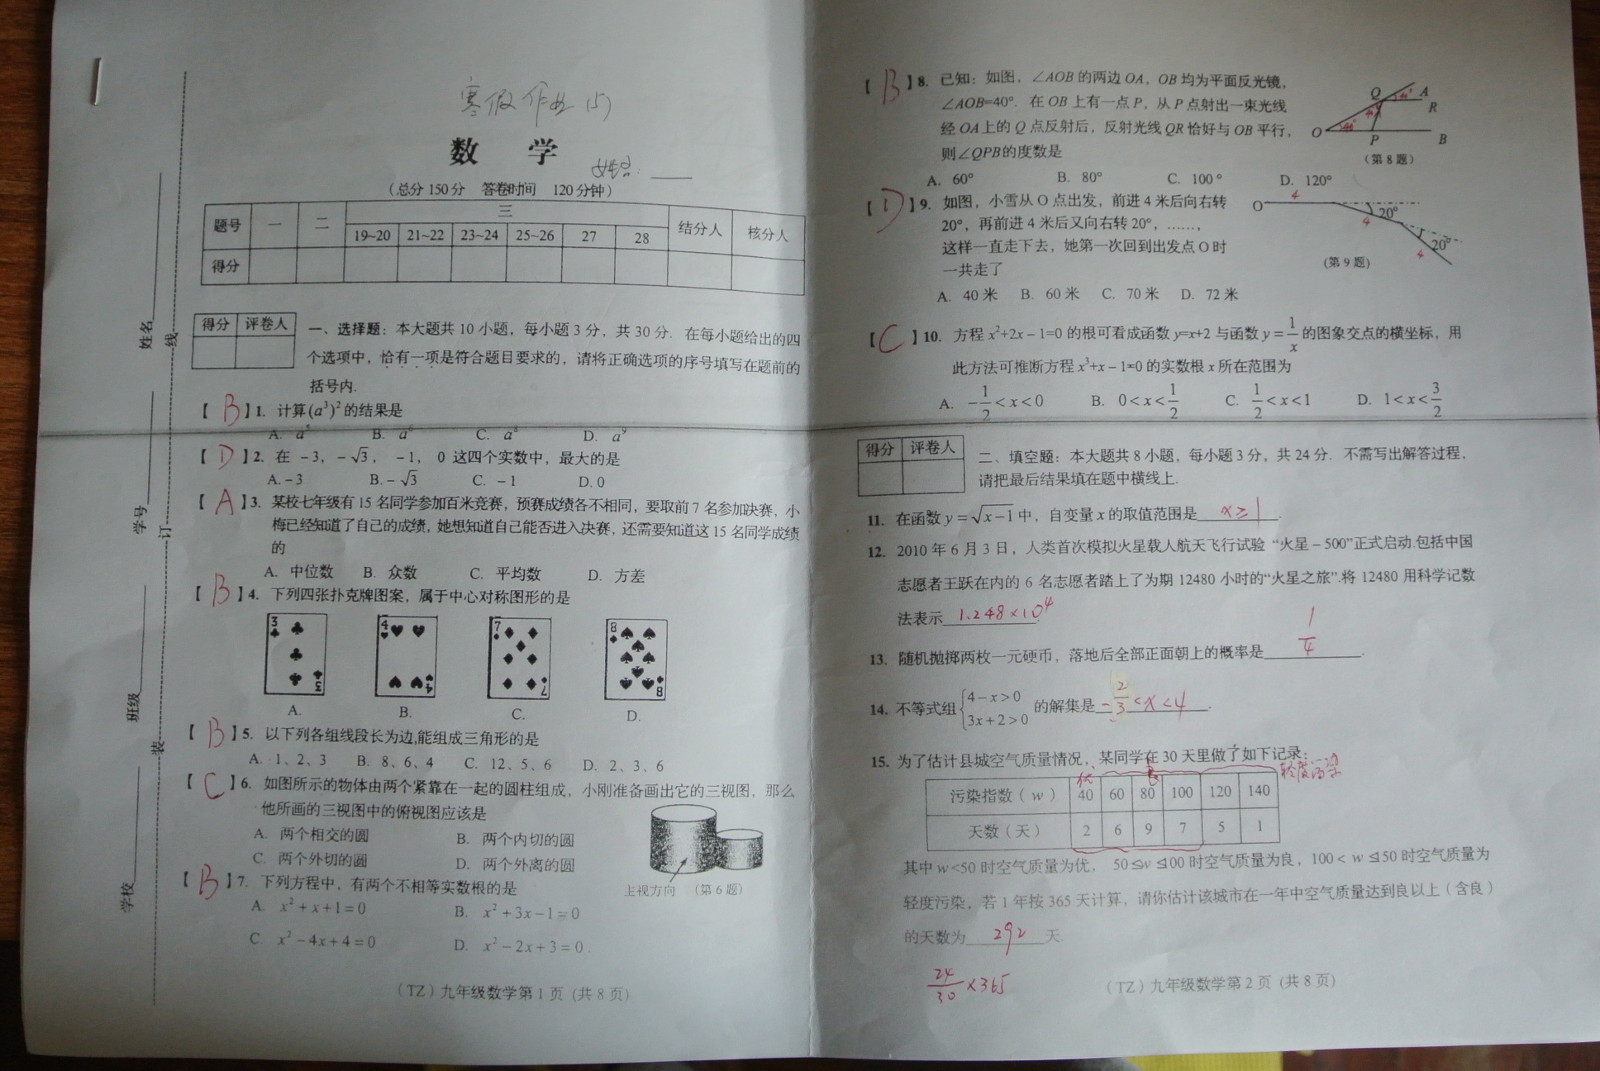 寒假作业(5)
数 学
姓名:
(总分 150 分 答卷时间 120 分钟)
题号 一 二 三 结分人 核分人
19~20 21~22 23~24 25~26 27 28
得分
得分 评卷人
一、选择题:本大题共 10 小题,每小题 3 分,共 30 分.在每小题给出的四
个选项中,恰有一项是符合题目要求的,请将正确选项的序号填写在题前的
括号内.
【 B 】1. 计算(a³)²的结果是
A. a⁵ B. a⁶ C. a⁸ D. a⁹
【 D 】2. 在 -3, -√3, -1, 0 这四个实数中,最大的是
A. -3 B. -√3 C. -1 D. 0
【 A 】3. 某校七年级有 15 名同学参加百米竞赛,预赛成绩各不相同,要取前 7 名参加决赛,小
梅已经知道了自己的成绩,她想知道自己能否进入决赛,还需要知道这 15 名同学成绩
的
A. 中位数 B. 众数 C. 平均数 D. 方差
【 B 】4. 下列四张扑克牌图案,属于中心对称图形的是
3 4 7 8
3 4 7 8
A. B. C. D.
【 B 】5. 以下列各组线段长为边,能组成三角形的是
A. 1、2、3 B. 8、6、4 C. 12、5、6 D. 2、3、6
【 C 】6. 如图所示的物体由两个紧靠在一起的圆柱组成,小刚准备画出它的三视图,那么
他所画的三视图中的俯视图应该是
A. 两个相交的圆 B. 两个内切的圆
C. 两个外切的圆 D. 两个外离的圆
主视方向 (第 6 题)
【 B 】7. 下列方程中,有两个不相等实数根的是
A. x²+x+1=0 B. x²+3x-1=0
C. x²-4x+4=0 D. x²-2x+3=0.
(TZ)九年级数学第 1 页 (共 8 页)
姓名
学号
班级
学校
线
订
装
【 B 】8. 已知:如图,∠AOB 的两边 OA,OB 均为平面反光镜,
∠AOB=40°.在 OB 上有一点 P,从 P 点射出一束光线
经 OA 上的 Q 点反射后,反射光线 QR 恰好与 OB 平行,
则∠QPB 的度数是
A. 60° B. 80° C. 100° D. 120°
Q A R O P B
(第 8 题)
【 D 】9. 如图,小雪从 O 点出发,前进 4 米后向右转
20°,再前进 4 米后又向右转 20°,……,
这样一直走下去,她第一次回到出发点 O 时
一共走了
A. 40 米 B. 60 米 C. 70 米 D. 72 米
O 4 20° 4 20° 4
(第 9 题)
【 C 】10. 方程 x²+2x-1=0 的根可看成函数 y=x+2 与函数 y=1/x 的图象交点的横坐标,用
此方法可推断方程 x³+x-1=0 的实数根 x 所在范围为
A. -1/2<x<0 B. 0<x<1/2 C. 1/2<x<1 D. 1<x<3/2
得分 评卷人
二、填空题:本大题共 8 小题,每小题 3 分,共 24 分.不需写出解答过程,
请把最后结果填在题中横线上.
11. 在函数 y=√(x-1) 中,自变量 x 的取值范围是 x≥1 .
12. 2010 年 6 月 3 日,人类首次模拟火星载人航天飞行试验 “火星-500”正式启动.包括中国
志愿者王跃在内的 6 名志愿者踏上了为期 12480 小时的“火星之旅”.将 12480 用科学记数
法表示 1.248×10⁴ .
13. 随机抛掷两枚一元硬币,落地后全部正面朝上的概率是 1/4 .
14. 不等式组{4-x>0 3x+2>0 的解集是 -2/3<x<4 .
15. 为了估计县城空气质量情况,某同学在 30 天里做了如下记录:
优 良 轻度污染
污染指数(w) 40 60 80 100 120 140
天数(天) 2 6 9 7 5 1
其中 w<50 时空气质量为优, 50≤w≤100 时空气质量为良,100<w≤150 时空气质量为
轻度污染,若 1 年按 365 天计算,请你估计该城市在一年中空气质量达到良以上(含良)
的天数为 292 天.
24/30×365
(TZ)九年级数学第 2 页 (共 8 页)